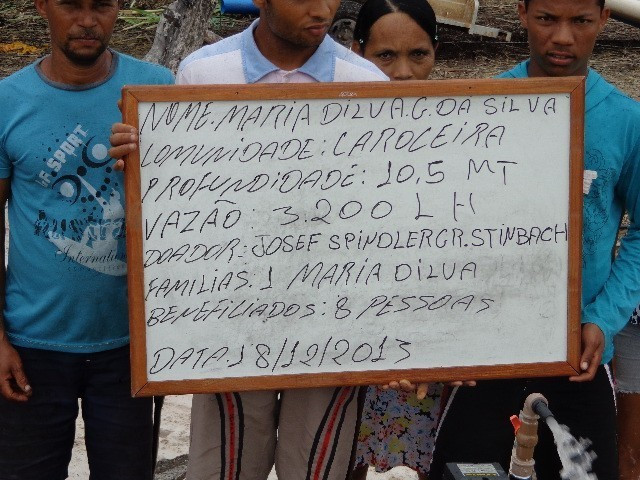 NOME. MARIA DILVA.G. DA SILVA
COMUNIDADE: CAROCEIRA
PROFUNDIDADE: 10,5 MT
VAZÃO: 3.200 L H
DOADOR: JOSEF SPINDLERGR.STINBACH
FAMILIAS: 1 MARIA DILVA
BENEFILIADOS: 8 PESSOAS
DATA 18/12/2013
SPORT
Internat